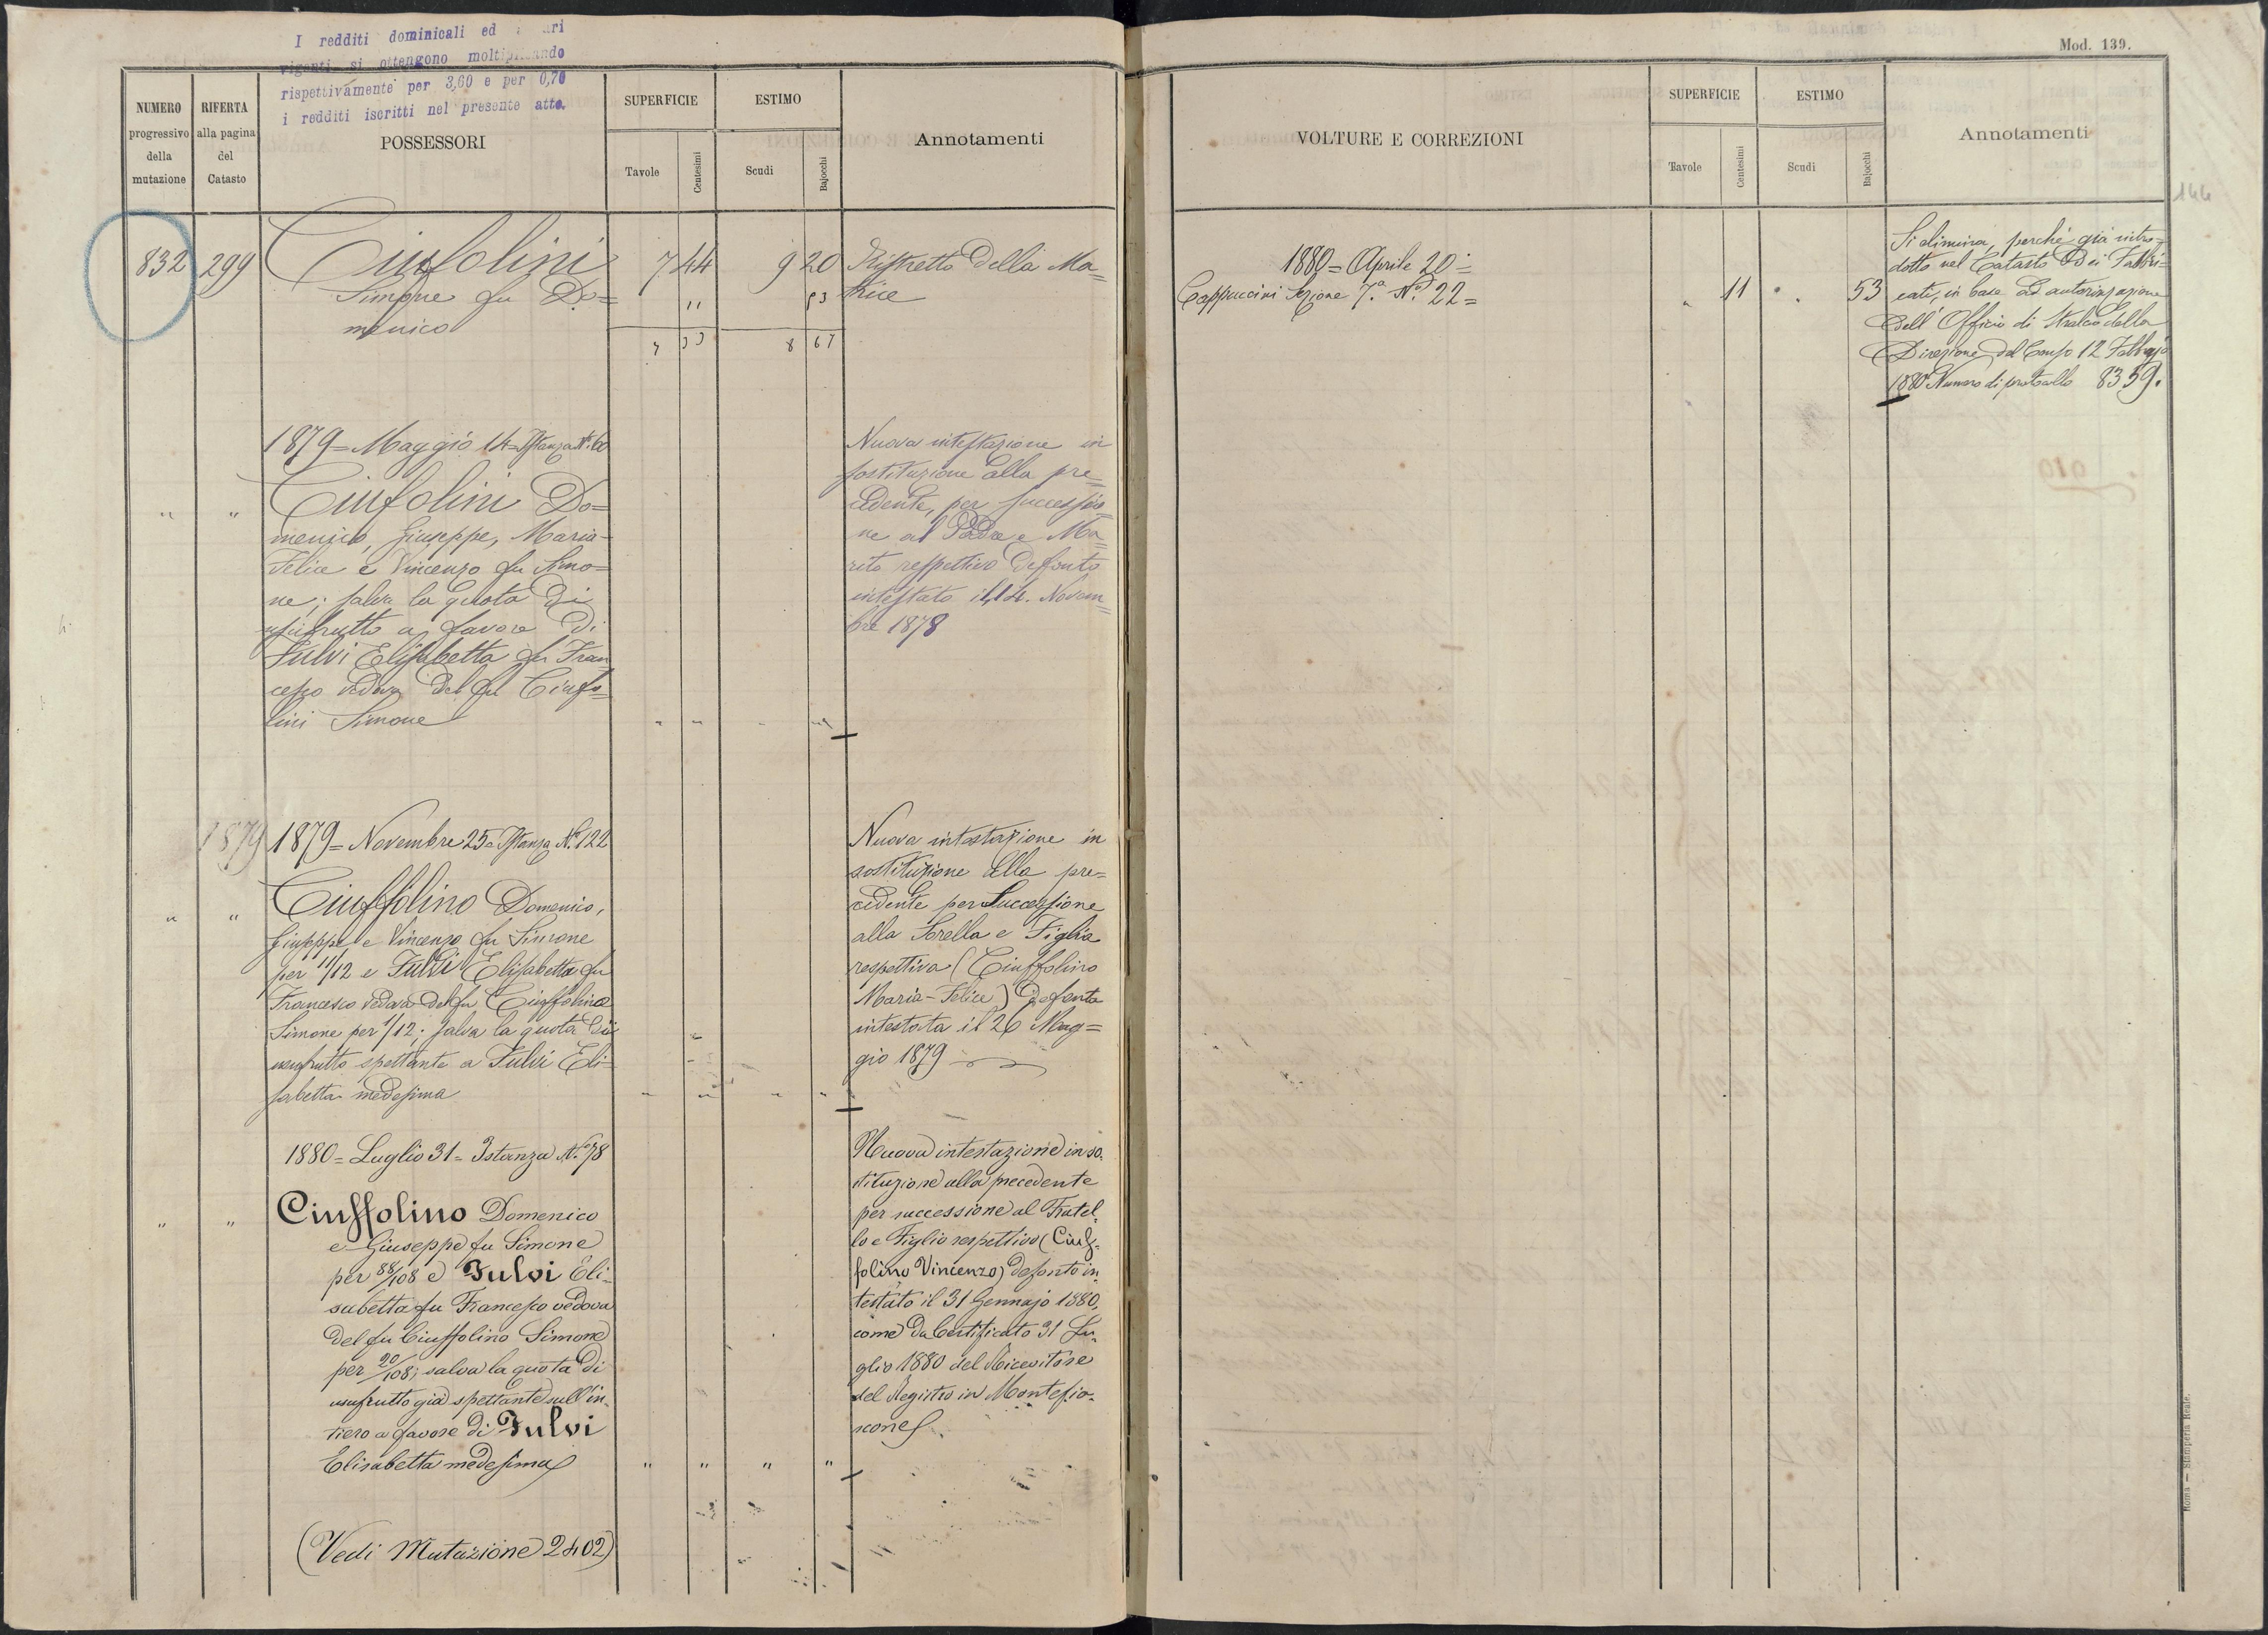 I redditi dominicali ed
vigenti si ottengono
rispettivamente per 3,60 e per 0,70
i redditi iscritti nel presente atto.
NUMERO
progressivo
della
mutazione
RIFERTA
alla pagina
del
Catasto
POSSESSORI
SUPERFICIE
Tavole
Centesimi
ESTIMO
Scudi
Bajocchi
Annotamenti
832 299 Ciufolini 7 44 9 20 Ristretto della Ma=
Simone fu Do= 11 53 trice
menico
7 33 8 67
1879 = Maggio 14 = Istanza N.º 60
" " Ciufolini Do=
menico, Giuseppe, Maria-
Felice e Vincenzo fu Simo=
ne; salva la quota di
usufrutto a favore di
Fulvi Elisabetta fu Fran
cesco vedova del fu Ciufo=
lini Simone
Nuova intestazione in
sostituzione alla pre=
cedente, per successio=
ne al Padre e Ma=
rito respettivo defonto
intestato il 14. Novem=
bre 1878
1879 1879 = Novembre 25 = Istanza N.º 122
" " Ciuffolino Domenico,
Giuseppe e Vincenzo fu Simone
per 11/12 e Fulvi Elisabetta fu
Francesco vedova del fu Ciuffolino
Simone per 1/12; salva la quota di
usufrutto spettante a Fulvi Eli=
sabetta medesima
Nuova intestazione in
sostituzione alla pre=
cedente per Successione
alla Sorella e Figlia
respettiva (Ciuffolino
Maria-Felice) defonta
intestata il 26 Mag=
gio 1879
1880 = Luglio 31 = Istanza N.º 78
" " Ciuffolino Domenico
e Giuseppe fu Simone
per 88/108 e Fulvi Eli=
sabetta fu Francesco vedova
del fu Ciuffolino Simone
per 20/108; salva la quota di
usufrutto già spettante sull'in=
tiero a favore di Fulvi
Elisabetta medesima " " " "
Nuova intestazione in so=
stituzione alla precedente
per successione al Fratel=
lo e Figlio respettivo (Ciuf=
folino Vincenzo) defonto in=
testato il 31 Gennajo 1880,
come da Certificato 31 Lu=
glio 1880 del Ricevitore
del Registro in Montefia=
scone
(Vedi Mutazione 2402)
Mod. 139.
VOLTURE E CORREZIONI
SUPERFICIE
Tavole
Centesimi
ESTIMO
Scudi
Bajocchi
Annotamenti
144
1880 = Aprile 20 =
Cappuccini Sezione 7.ª N.º 22 = " 11 " 53
Si elimina, perchè già intro=
dotto nel Catasto dei Fabbri=
cati, in base ad autorizzazione
dell'Officio di Stralcio della
Direzione del Censo 12 Febbrajo
1880 Numero di protocollo 8359.
Roma — Stamperia Reale.